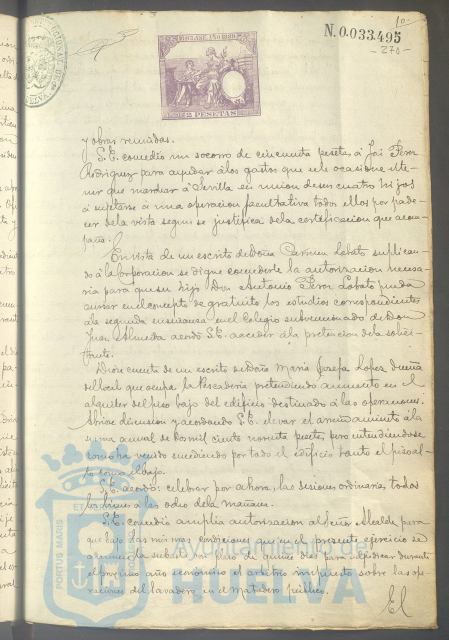 10
N.0.033.495
-270-
CLASE AÑO 1889
2 PESETAS
y obras reunidas.
S.E. concedió un socorro de cincuenta pesetas á José Perez
Rodriguez para ayudar á los gastos que se le ocasione al te-
ner que marchar á Sevilla en union de sus cuatro hijos
á sujetarse á una operacion facultativa todos ellos por pade-
cer de la vista segun se justifica de la certificacion que acom-
paña.
En vista de un escrito de Doña Carmen Lobato suplican-
do á la Corporacion se digne concederle la autorizacion necesa-
ria para que su hijo Don Antonio Perez Lobato pueda
cursar en el concepto de gratuito los estudios correspondientes
á la segunda enseñanza en el Colegio subvencionado de Don
Juan Almeda acordó S.E. acceder á la pretencion de la solici-
tante.
Diose cuenta de un escrito de Doña Maria Josefa Lopez dueña
del local que ocupa la Pescaderia pretendiendo aumento en el
alquiler del piso bajo del edificio destinado á las operaciones.
Abriose discusion y acordando S.E. elevar el arrendamiento á la
suma anual de dos mil ciento noventa pesetas, pero entendiendose
como ha venido sucediendo por todo el edificio tanto el piso al-
to como el bajo.
S.E. acordó: celebrar por ahora, las sesiones ordinarias todos
los lunes á las ocho de la mañana.
S.E. concedió amplia autorizacion al Señor Alcalde para
que bajo las mismas condiciones que en el presente ejercicio se
anuncie la subasta por plazo de quince dias para espedirse durante
el proximo año economico el arbitrio impuesto sobre las ope-
raciones del lavadero en el Matadero público.
El
PORTUS MARIS
ET
Ayuntamiento de
HUELVA